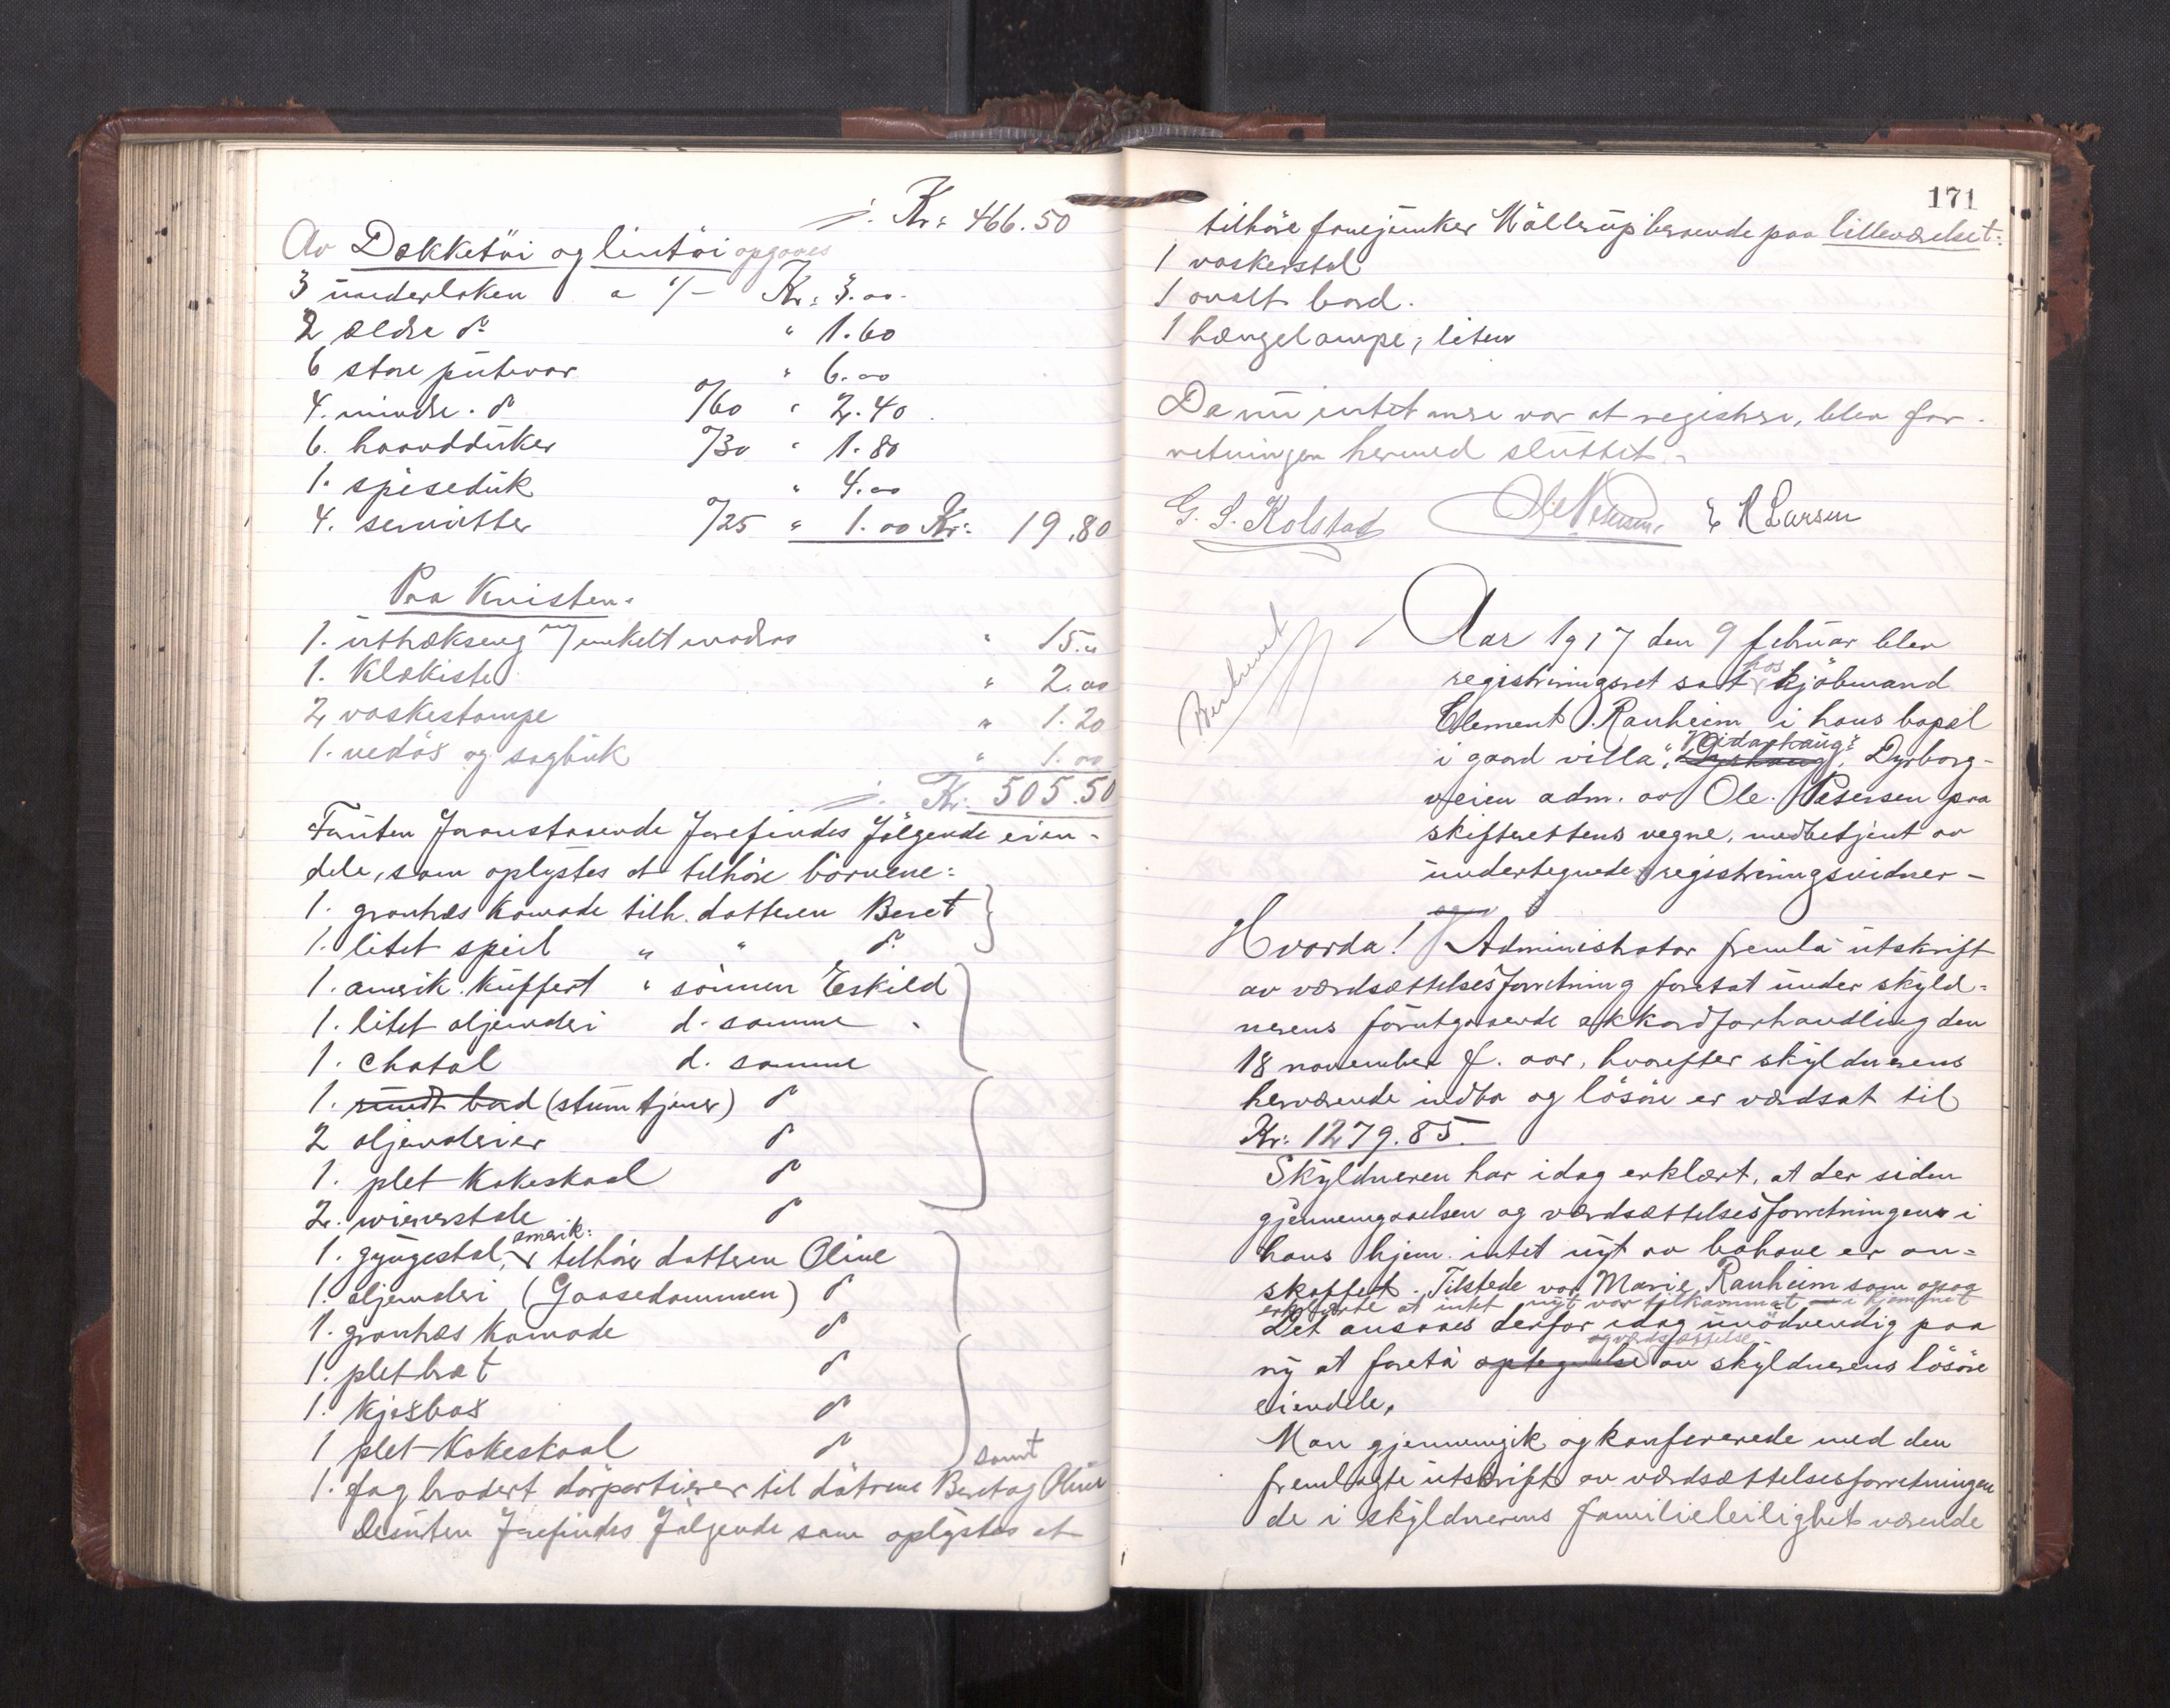 ÷ Kr: 466.50
Av Dækketöi og lintöi opgaves
3 underlaken a 1/- Kr: 3.00
2 ældre do " 1.60
6 store putevar " 6.00
4. mindre do 0/60 " 2.40
6. haandduker 0/30 " 1.80
1. spiseduk " 4.00
4. servietter 0/25 " 1.00 Kr: 19.80
Paa Kvisten.
1. uttrækseng m/ enkelt madras " 15.00
1. Klækiste " 2.00
2 vaskestampe " 1.20
1. vedöx og sagbuk " 1.00
÷ Kr: 505.50
Foruten foranstaaende forefindes fölgende eien-
dele, som oplystes at tilhöre börnene:
1. granhæs Komode tilh. datteren Beret
1. litet speil " " do
1. amerik. Kuffert " sönnen Eskild
1. litet oljemaleri d. samme
1. Chatol d. samme
1. rundt bord (stumtjener) do
2 oljemalerier do
1. plet Kakeskaal do
2. wienerstole do
1. gyngestol, amerik: tilhörer datteren Oline
1. oljemaleri (Gaasedammen) do
1. granhæs Komode do
1. pletbræt do
1. Kjexbox do
1 plet Kakeskaal do samt
1. fag brodert dörportierer til dötrene Beret og Oline
Desuten forefindes fölgende som oplystes at
171
tilhöre fanejunker Möllerup beroende paa lilleværelset:
1 vaskerstol
1 ovalt bord.
1 hængelampe, liten
Da nu intet mere var at registrere, blev for-
retningen hermed sluttet.
G. S. Kolstad Ole Pedersen E R Larsen
Aar 1917 den 9 februar blev
registreringsret sat hos kjöbmand
Clement Ranheim i hans bopæl
i gaard villa "Nidarhaug" Dyrborg-
veien adm. av Ole Pedersen paa
skifterettens vegne, medbetjent av
undertegnede registreringsvidner -
Hvorda! Administrator fremla utskrift
av værdsættelsesforretning foretat under skyld-
nerens forutgaaende akkordforhandling den
18 november f. aar, hvorefter skyldnerens
herværende indbo og lösöre er værdsat til
Kr: 1279.85.
Skyldneren har idag erklært, at der siden
gjennemgaaelsen og værdsættelsesforretningen i
hans hjem intet nyt av bohave er an-
skaffet. Tilstede var Marie Ranheim som ogsaa
erklærte at intet nyt var tilkommet i hjemmet
Det ansaaes derfor idag unödvendig paa
ny at foreta optegnelse og værdsættelse av skyldnerens lösöre
eiendele.
Man gjennemgik og konfererede med den
fremlagte utskrift av værdsættelsesforretningen
de i skyldnerens familieleilighet værende